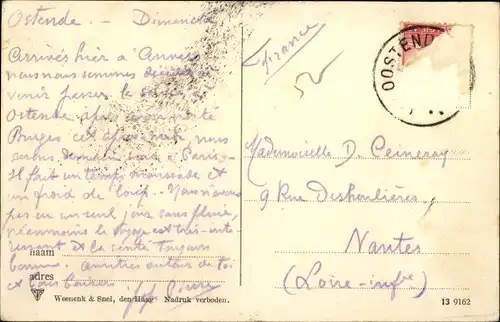 Ostende. - Dimanche
Arrivés hier à Anvers
nous nous sommes décidés à
venir passer la
Ostende après avoir visité
Bruges cet après-midi nous
serons demain soir à Paris -
Il fait un temps maussade et
un froid de loup. Nous n'avons
pas eu un seul jour sans pluie,
néanmoins le voyage est très inté-
ressant et la santé toujours
bonne. Amitiés autour de toi
et bons baisers Pierre
naam
adres
Weenenk & Snel, den Haag Nadruk verboden.
(France)
52
OOSTEND
Mademoiselle D. Ceineray
9 Rue Deshoulières
Nantes
(Loire-infre)
13 9162